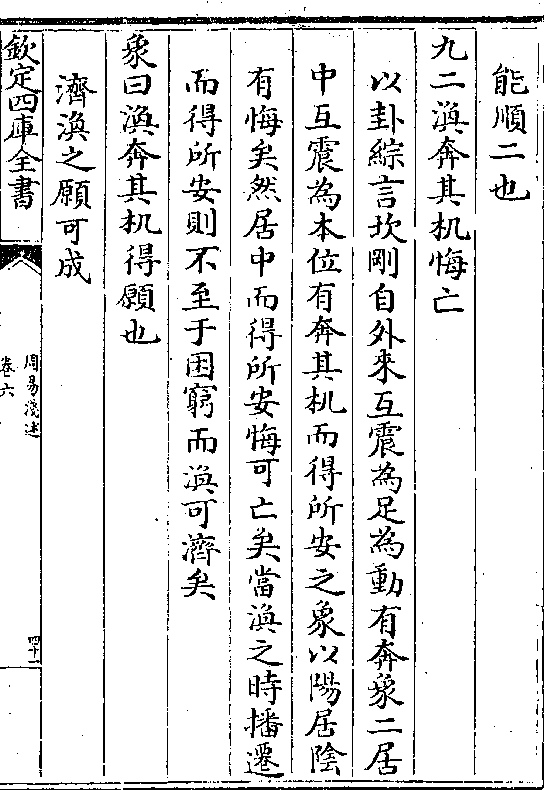 能順二也
九二渙奔其机悔亡
以卦綜言坎剛自外來互震為足為動有奔象二居
中互震為本位有奔其机而得所安之象以陽居陰
有悔矣然居中而得所安悔可亡矣當渙之時播遷
而得所安則不至于困窮而渙可濟矣
象曰渙奔其机得願也
濟渙之願可成
欽定四庫全書
周易淺述
卷六
四十一